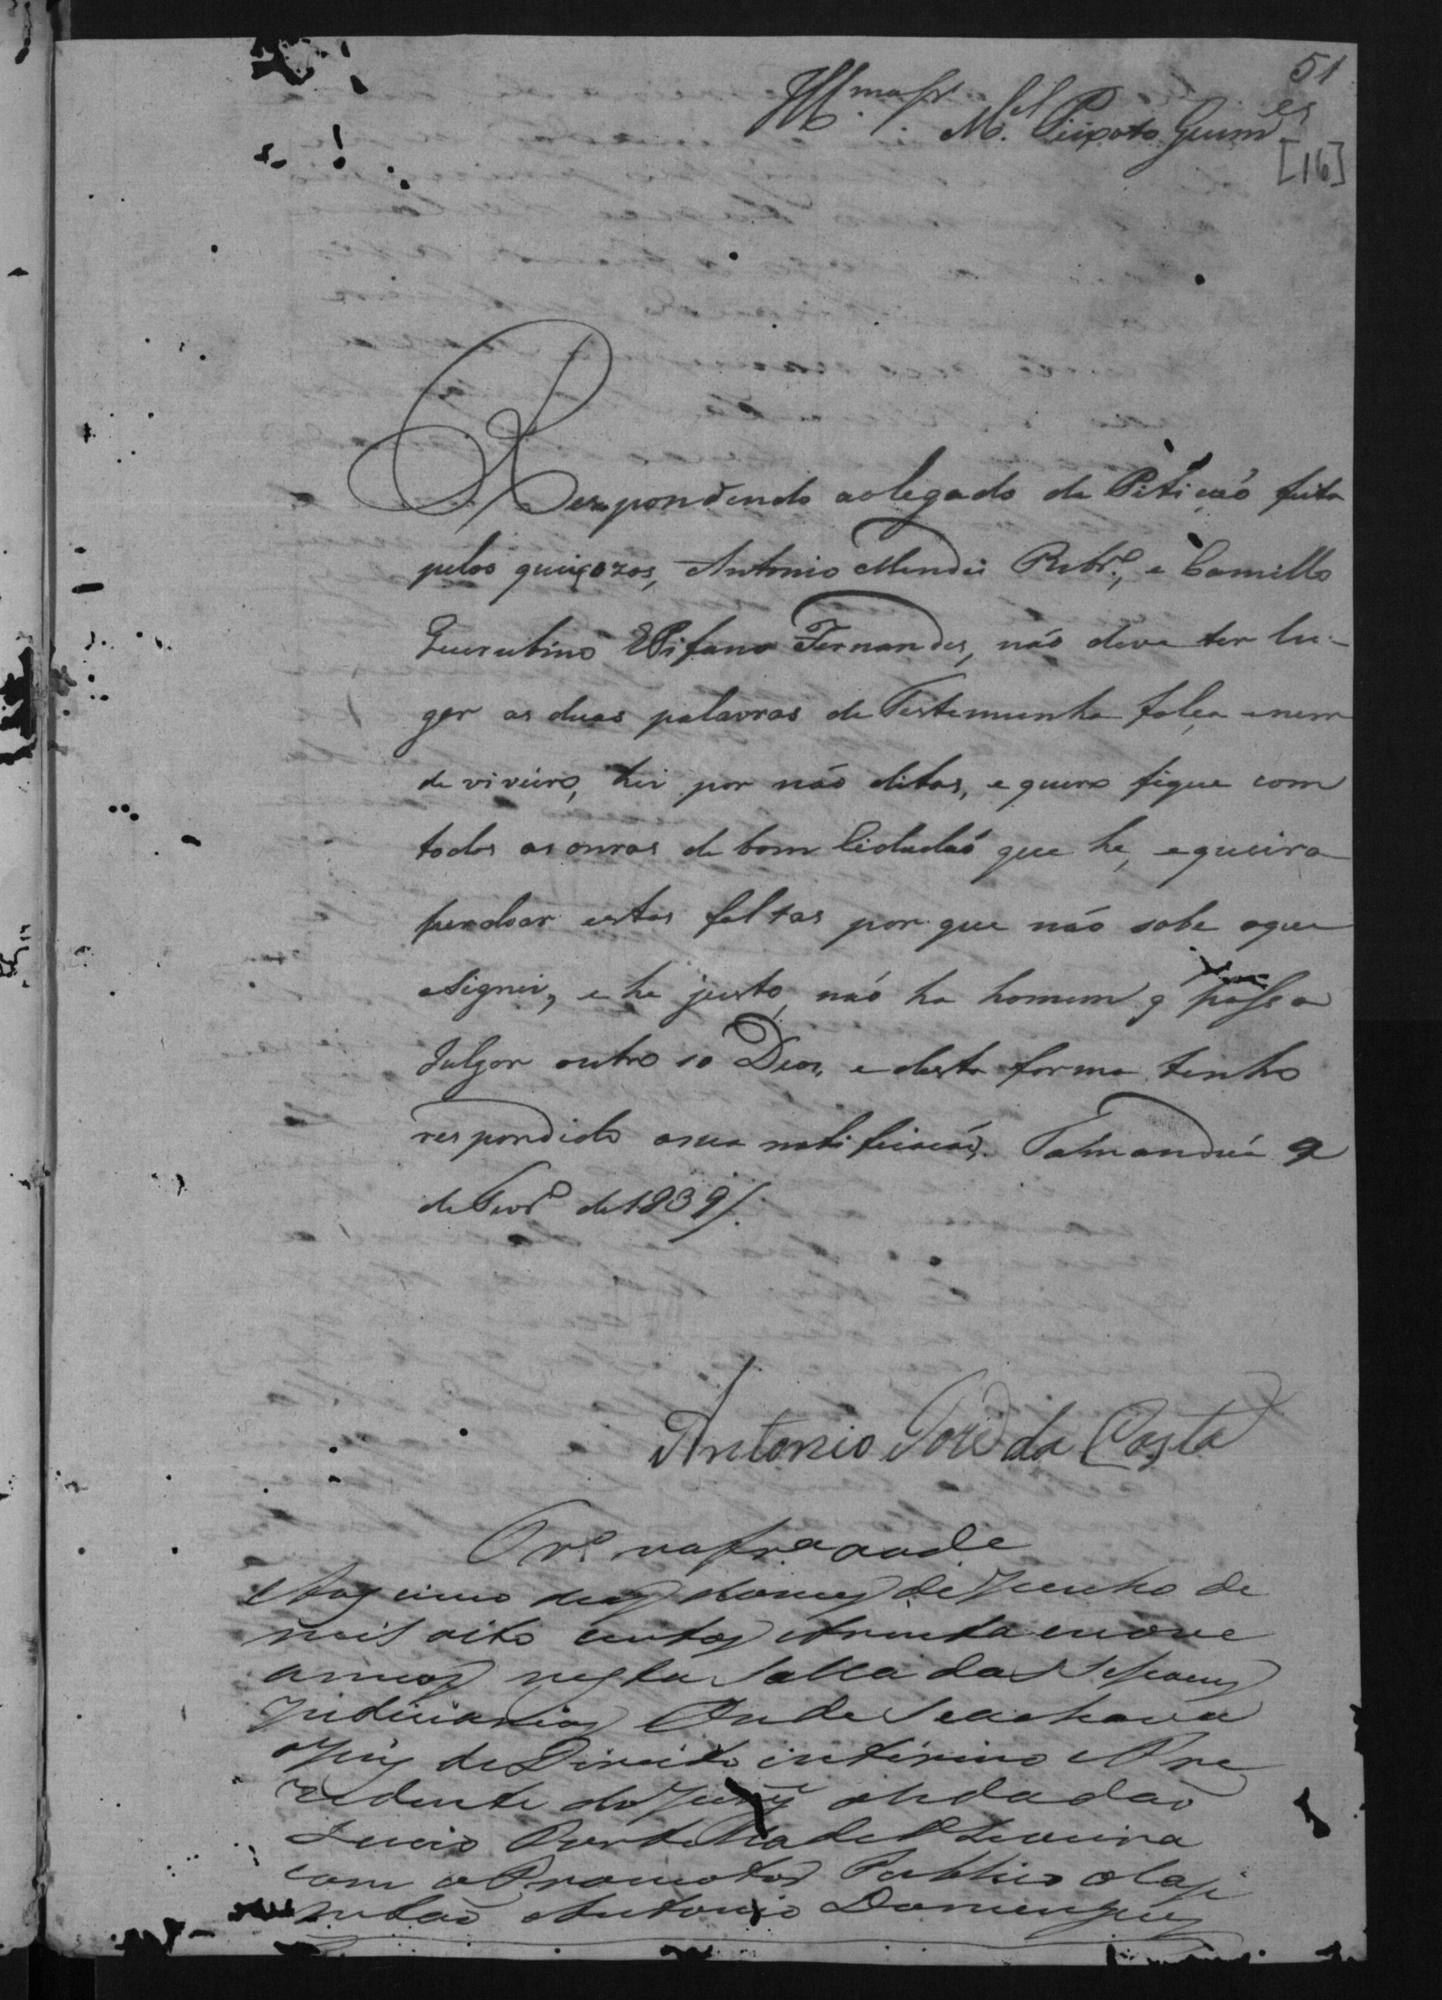 51
Ill.mo Sr. M.el Peixoto Guim.es
[16]
Respondendo aolegado da Pitiçaó feita
pelos queiçozos, Antonio Mendes Ribr.o, e Camillo
Querubino Epifano Fernandes, não deve ter lu-
gar as duas palavras de Testemunha falça enem
de viveiro, hei por não ditas, e quero fique com
todas as onras de bom Cidadaó que he, equeira
perdoar estas faltas por que não sabe oque
asignei, e he justo, não ha homem q possa
Julgar outro so Deos, e desta forma tenho
respondido asua notificacão. Tamanduá 9
de Fevr.o de 1839/.
Antonio José da Costa
Aos cinco dias do mes de Junho de
mil oito centos etrinta enove
annos nesta Salla das Seçoens
Judiciarias Onde Seachava
oJuis de Direito interino e Pre
zidente do Jury oCidadaõ
Lucio de Oliveira
com oPromotor Publico oCapi
mtaõ Antonio Domingues